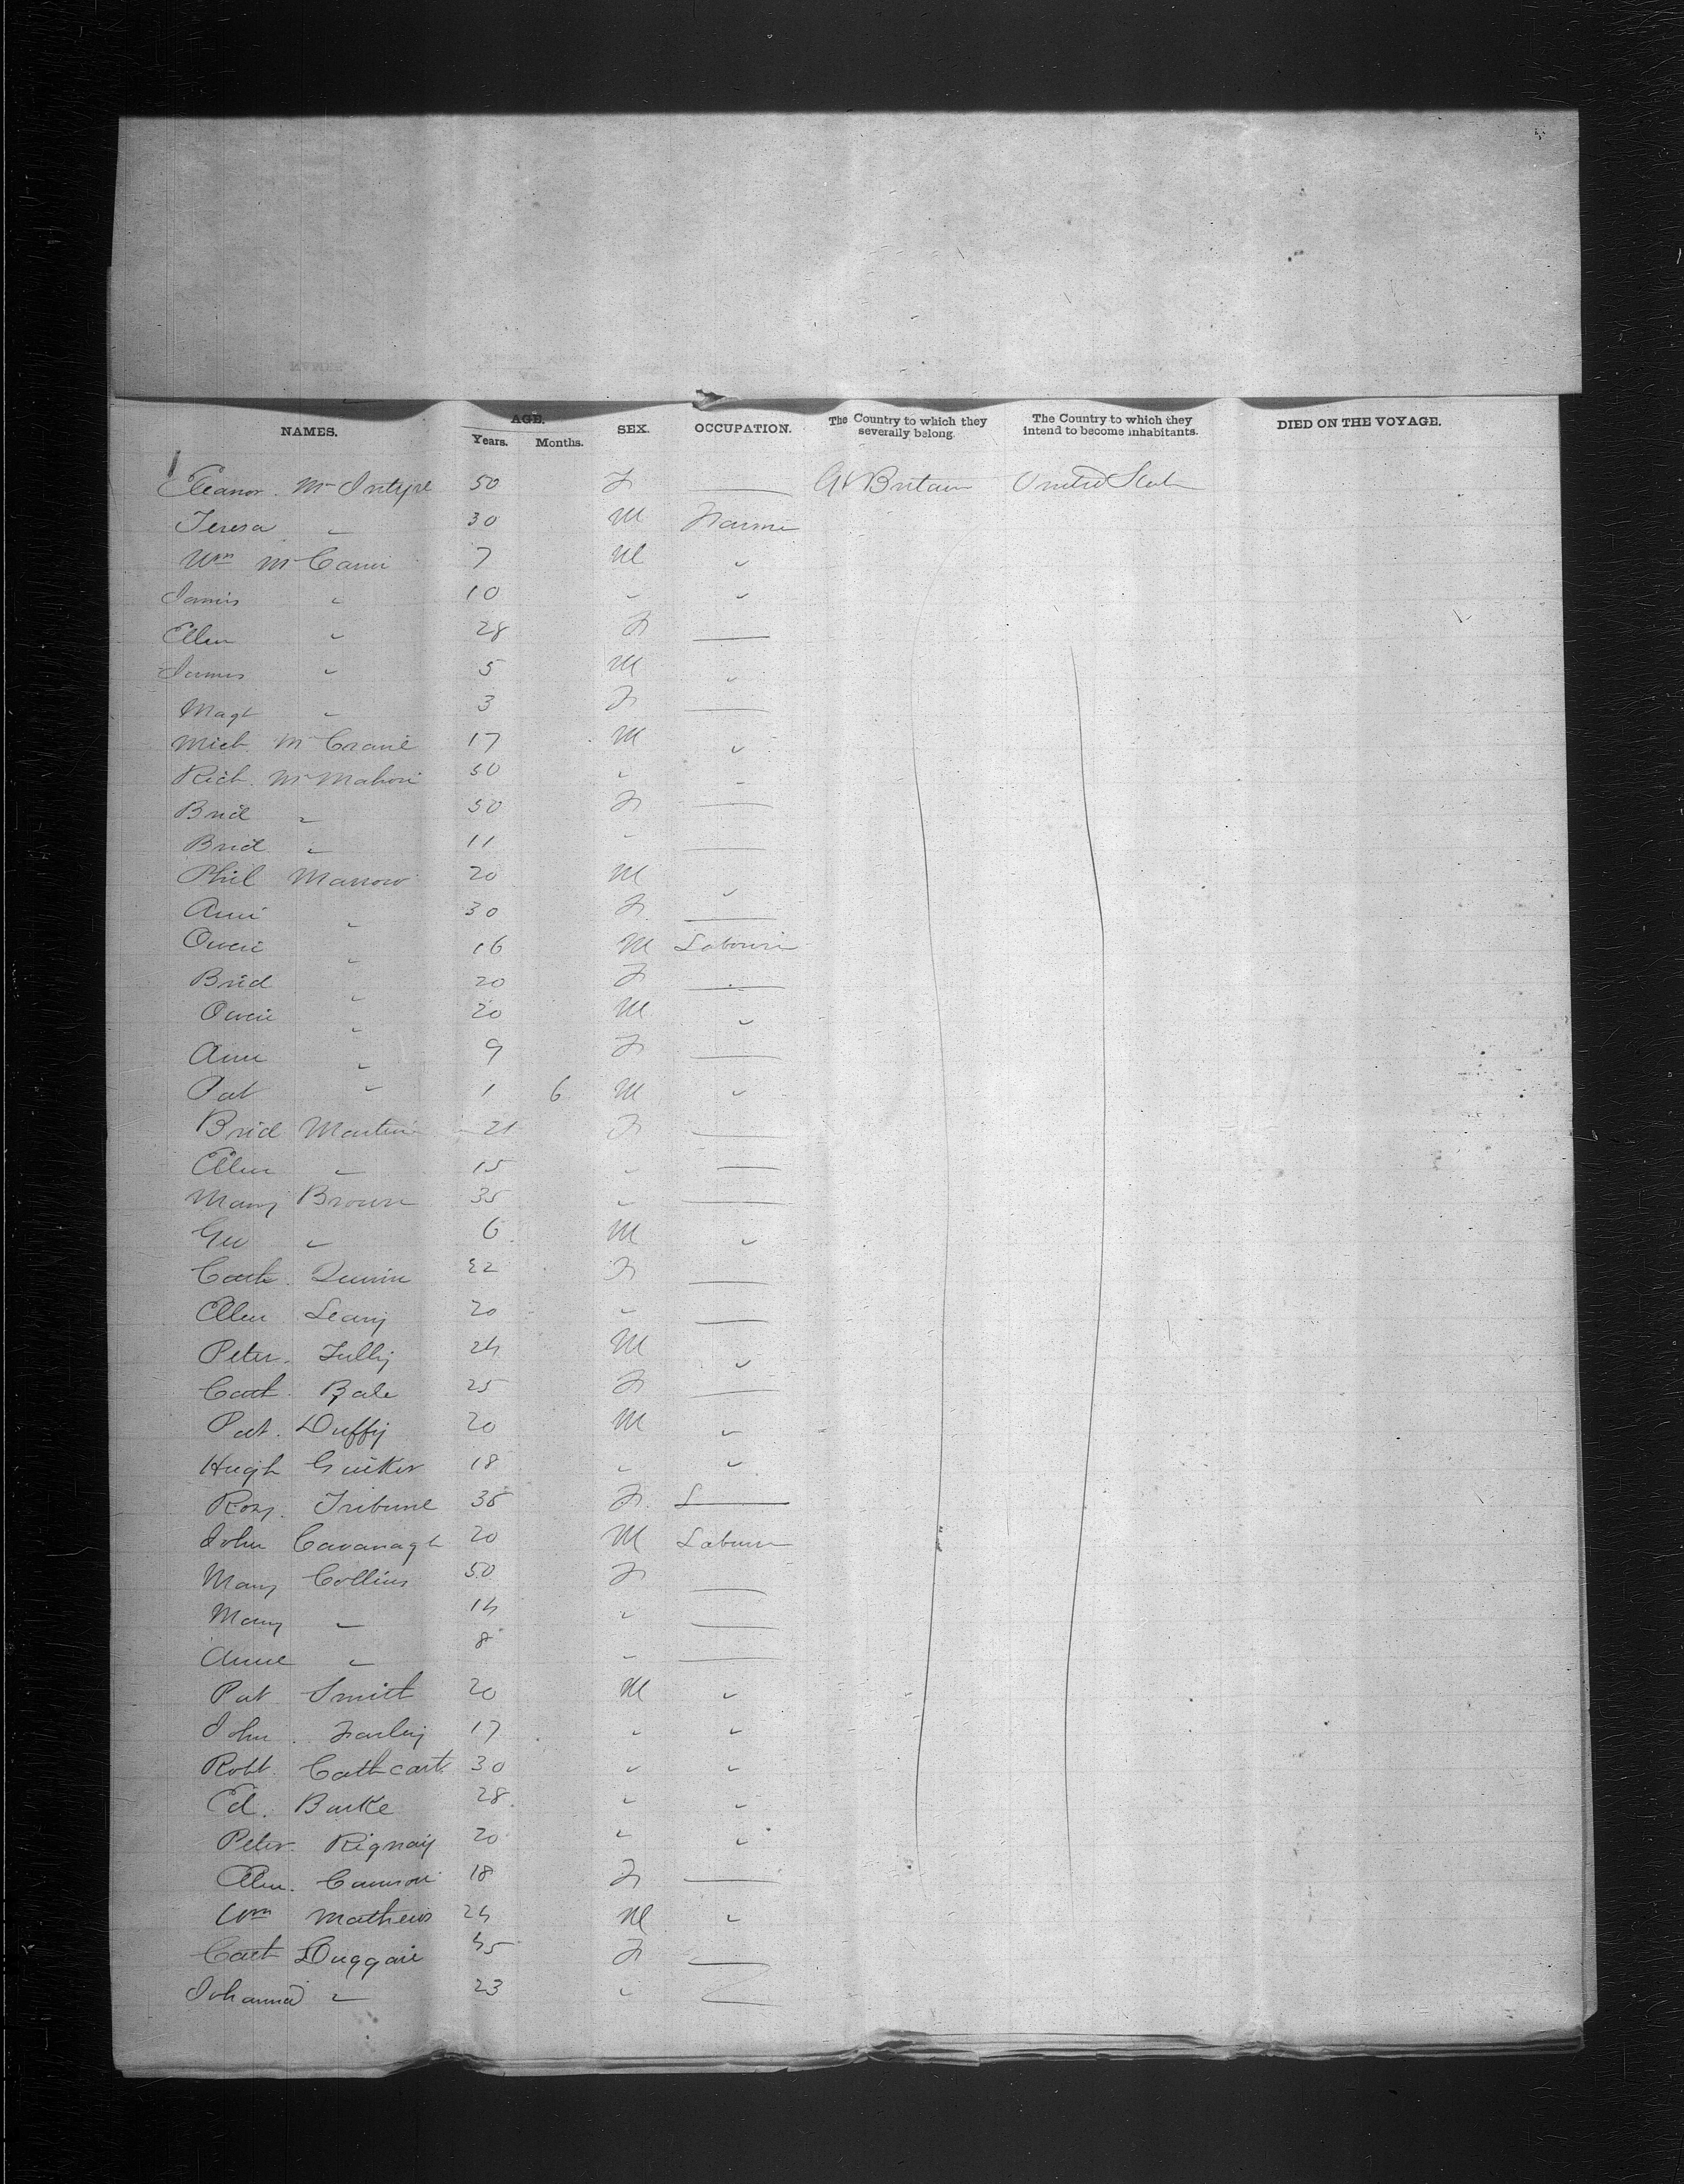 NAMES. AGE. Years. Months. SEX. OCCUPATION. The Country to which they severally belong. The Country to which they intend to become inhabitants. DIED ON THE VOYAGE.
Eleanor McIntyre 50 F — Gt Britain United Stat
Teresa " 30 M Farmer
Wm McCann 7 M "
James " 10 " "
Ellen " 28 F —
James " 5 M "
Magt " 3 F —
Mich. 17 M "
Rich. McMahon 50 " "
Brid " 50 F —
Brid " 11 " —
Phil Marrow 20 M "
Ann " 30 F —
Owen " 16 M Labourer
Brid " 20 F —
Owen " 20 M "
Ann " 9 F —
Pat " 1 6 M "
Brid Martin 21 F —
Ellen " 15 " —
Mary Brown 35 " —
Geo " 6 M "
Cath. Quinn 22 F —
Ellen Leary 20 " —
Peter Tully 24 M "
Cath. 25 F —
Pat. Duffy 20 M "
Hugh 18 " "
Rosy. Tribune F —
John Cavanagh 20 M Labourer
Mary Collins 50 F —
Mary " 14 " —
Anne " 8 " —
Pat Smith 20 M "
John Farley 17 " "
Robt. Cathcart 30 " "
Ed. Burke 28 " "
Peter Rignay 20 " "
Ellen 18 F —
Wm Mathews 24 M "
Cath Duggan 45 F —
Johanna " 23 " —